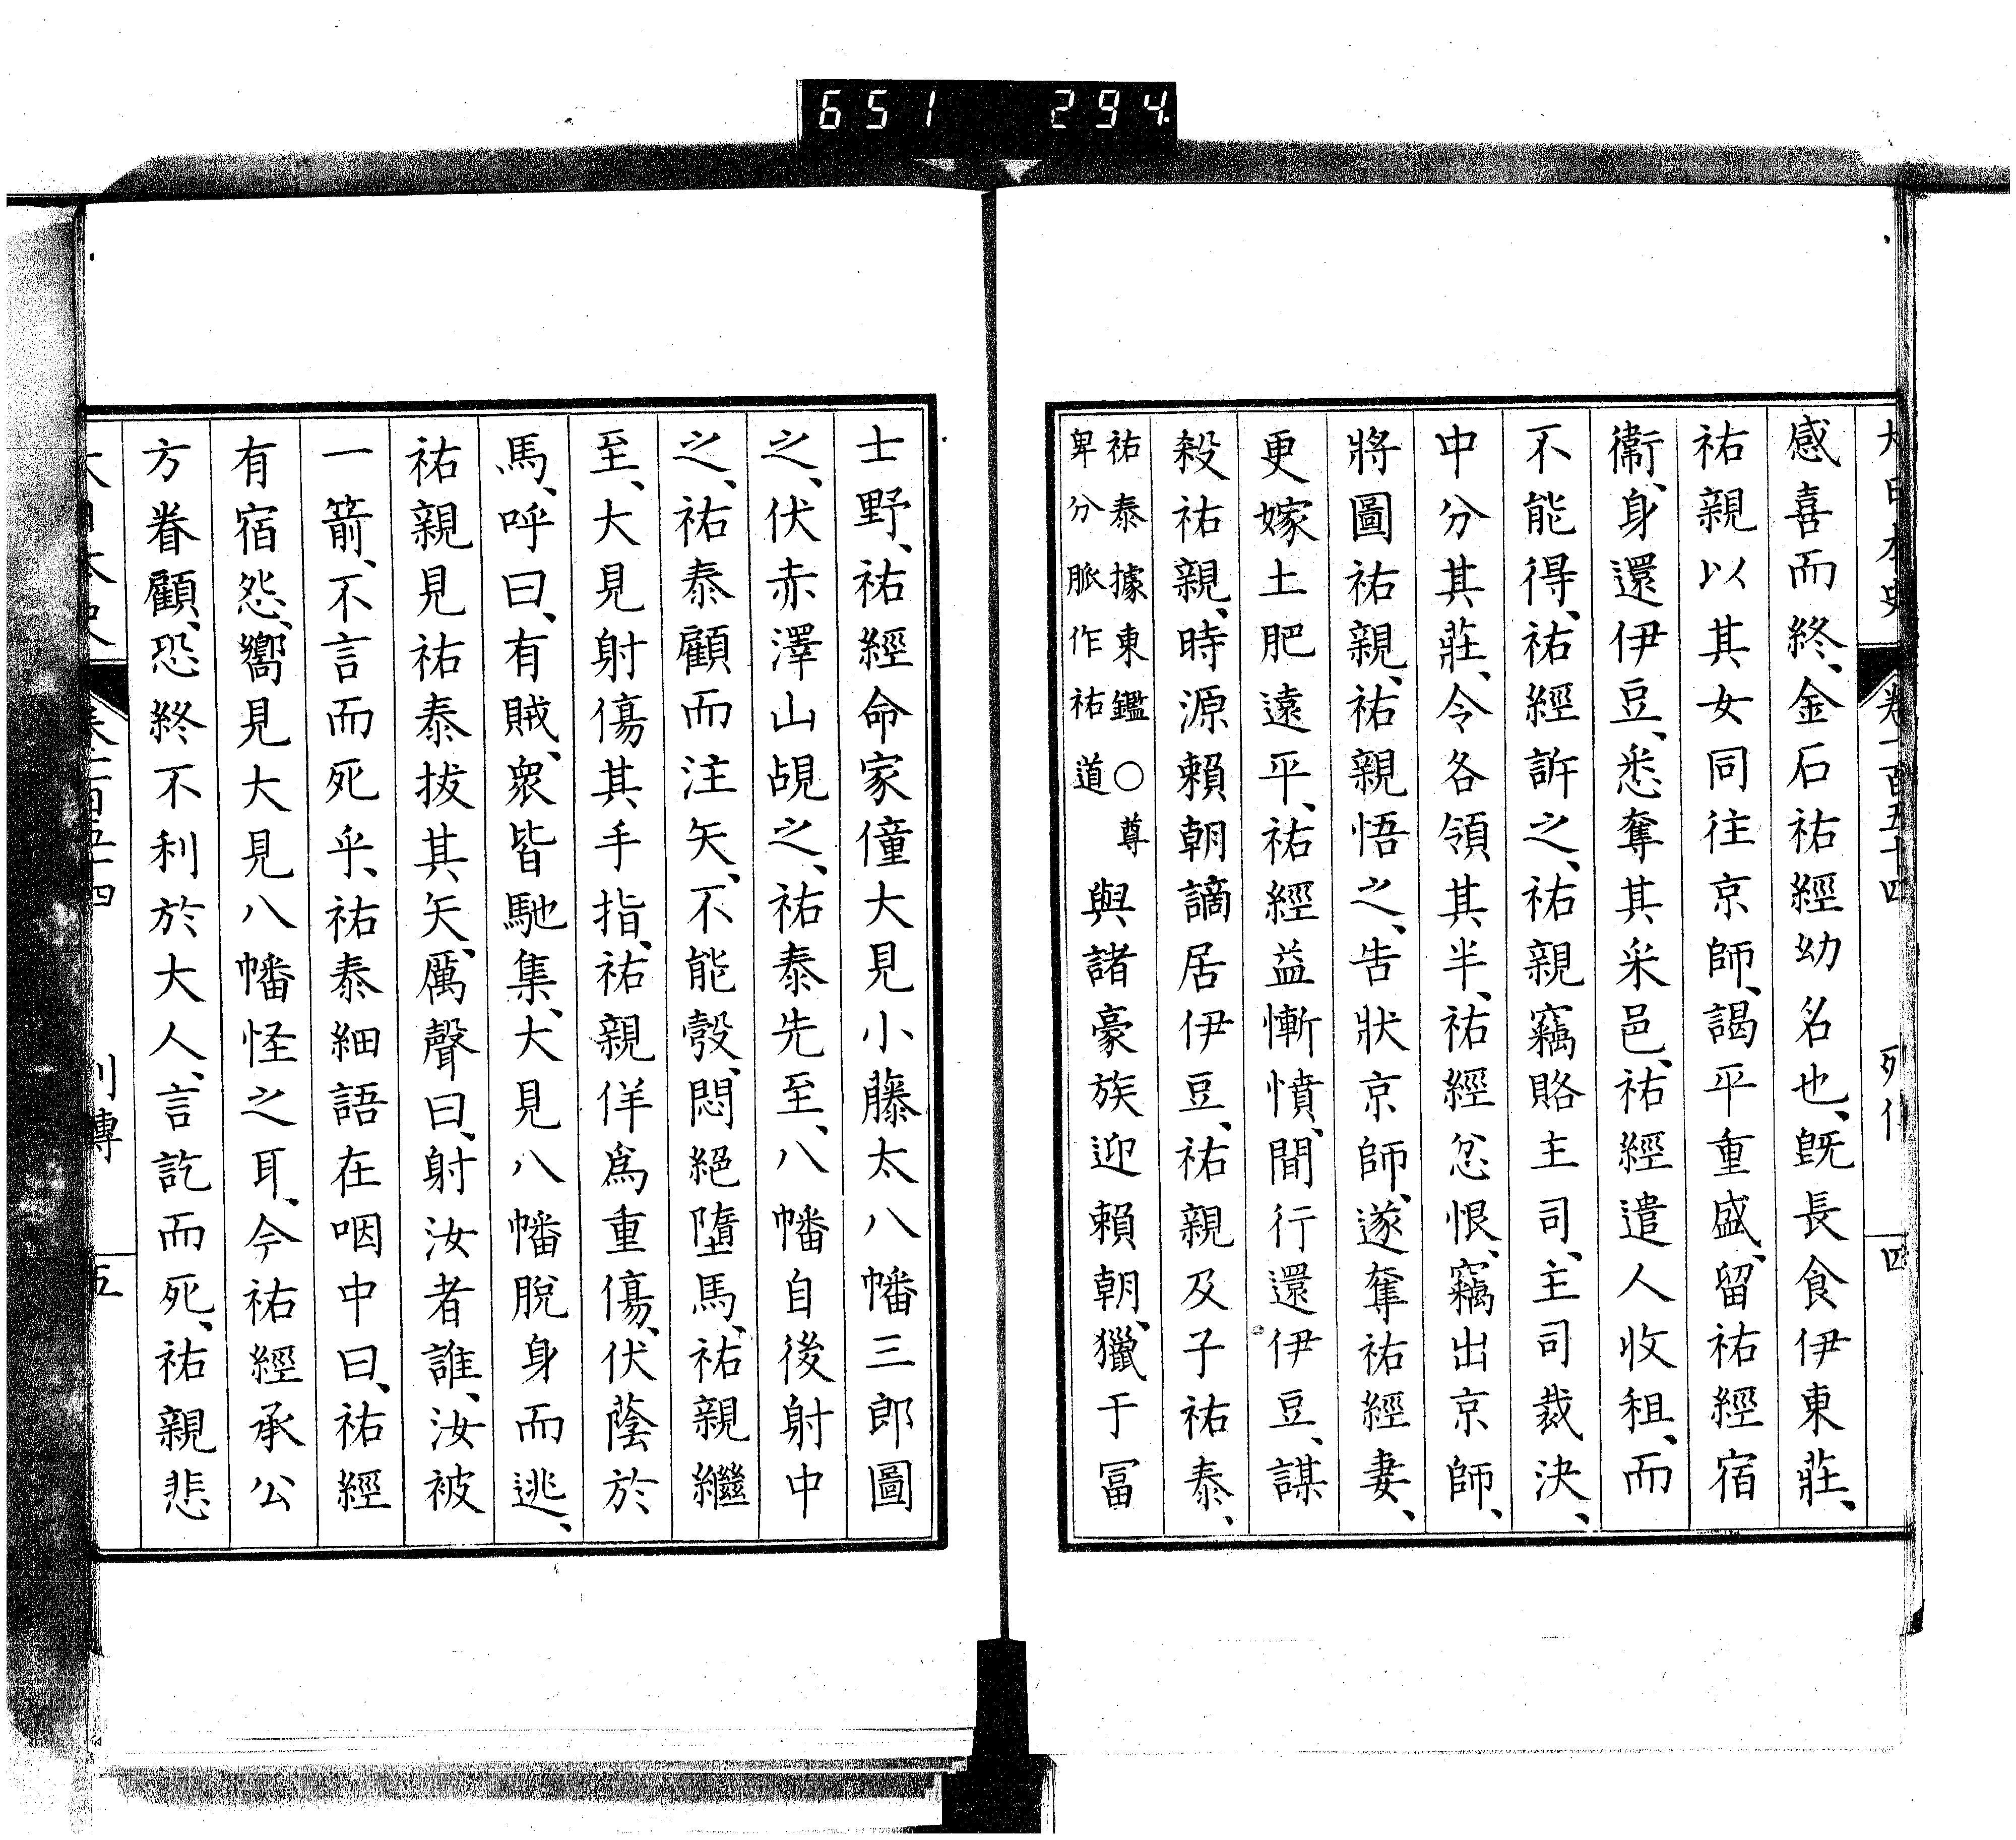 651 294.
大日本史 卷二百五十四 列傳 四
感喜而終、金石祐經幼名也、既長食伊東莊、
祐親以其女同往京師、謁平重盛、留祐經宿
衞、身還伊豆、悉奪其采邑、祐經遣人收租、而
不能得、祐經訴之、祐親竊賂主司、主司裁決、
中分其莊、令各領其半、祐經忿恨、竊出京師、
將圖祐親、祐親悟之、告狀京師、遂奪祐經妻、
更嫁土肥遠平、祐經益慚憤、間行還伊豆、謀
殺祐親、時源賴朝謫居伊豆、祐親及子祐泰、
祐泰據東鑑○尊
卑分脈作祐道
與諸豪族迎賴朝、獵于冨
士野、祐經命家僮大見小藤太八幡三郎圖
之、伏赤澤山覘之、祐泰先至、八幡自後射中
之、祐泰顧而注矢、不能彀、悶絕墮馬、祐親繼
至、大見射傷其手指、祐親佯爲重傷、伏蔭於
馬、呼曰、有賊、衆皆馳集、大見八幡脫身而逃、
祐親見祐泰拔其矢、厲聲曰、射汝者誰、汝被
一箭、不言而死乎、祐泰細語在咽中曰、祐經
有宿怨、嚮見大見八幡怪之耳、今祐經承公
方眷顧、恐終不利於大人、言訖而死、祐親悲
大日本史 卷二百五十四 列傳 五